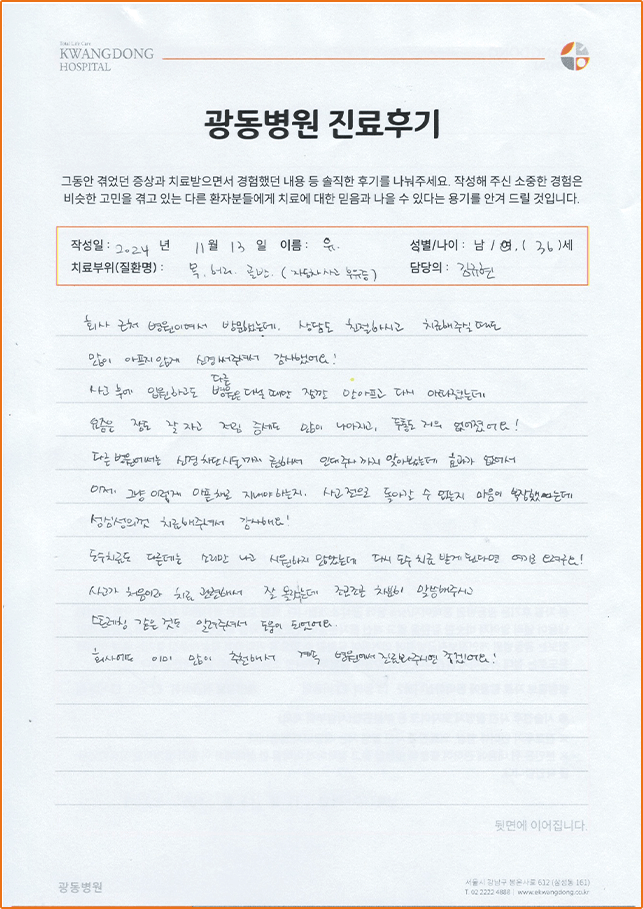 Total Life Care
KWANGDONG
HOSPITAL
광동병원 진료후기
그동안 겪었던 증상과 치료받으면서 경험했던 내용 등 솔직한 후기를 나눠주세요. 작성해 주신 소중한 경험은
비슷한 고민을 겪고 있는 다른 환자분들에게 치료에 대한 믿음과 나을 수 있다는 용기를 안겨 드릴 것입니다.
작성일 : 2024 년 11 월 13 일 이름 : 유. 성별/나이 : 남 / 여, ( 36 )세
치료부위(질환명) : 목, 허리, 골반. (자동차사고 후유증) 담당의 : 김규현
회사 근처 병원이여서 방문했는데, 상담도 친절하시고 치료해주실 때도
많이 아프지 않게 신경써주셔서 감사했어요!
사고 후에 입원하고도 다른 병원은 그때만 잠깐 안아프고 다시 아파졌는데
요즘은 잠도 잘 자고 저림 증세도 많이 나아지고, 두통도 거의 없어졌어요!
다른병원에서는 신경차단시술까지 권해서 인대주사까지 맞아봤는데 효과가 없어서
이제 그냥 이렇게 아픈채로 지내야하는지, 사고전으로 돌아갈 수 없는지 마음이 복잡했는데
성심성의껏 치료해주셔서 감사해요!
도수치료도 다른데는 소리만 나고 시원하지 않았는데 다시 도수치료 받게 된다면 여기로
사고가 처음이라 치료 관련해서 잘 몰랐는데 조곤조곤 차분히 말씀해주시고
스트레칭 같은것도 알려주셔서 도움이 되었어요.
회사에도 이미 많이 추천해서 계속 병원에서 진료봐주시면 좋겠어요!
뒷면에 이어집니다.
광동병원
서울시 강남구 봉은사로 612 (삼성동 161)
T. 02 2222 4888 | www.ekwangdong.co.kr